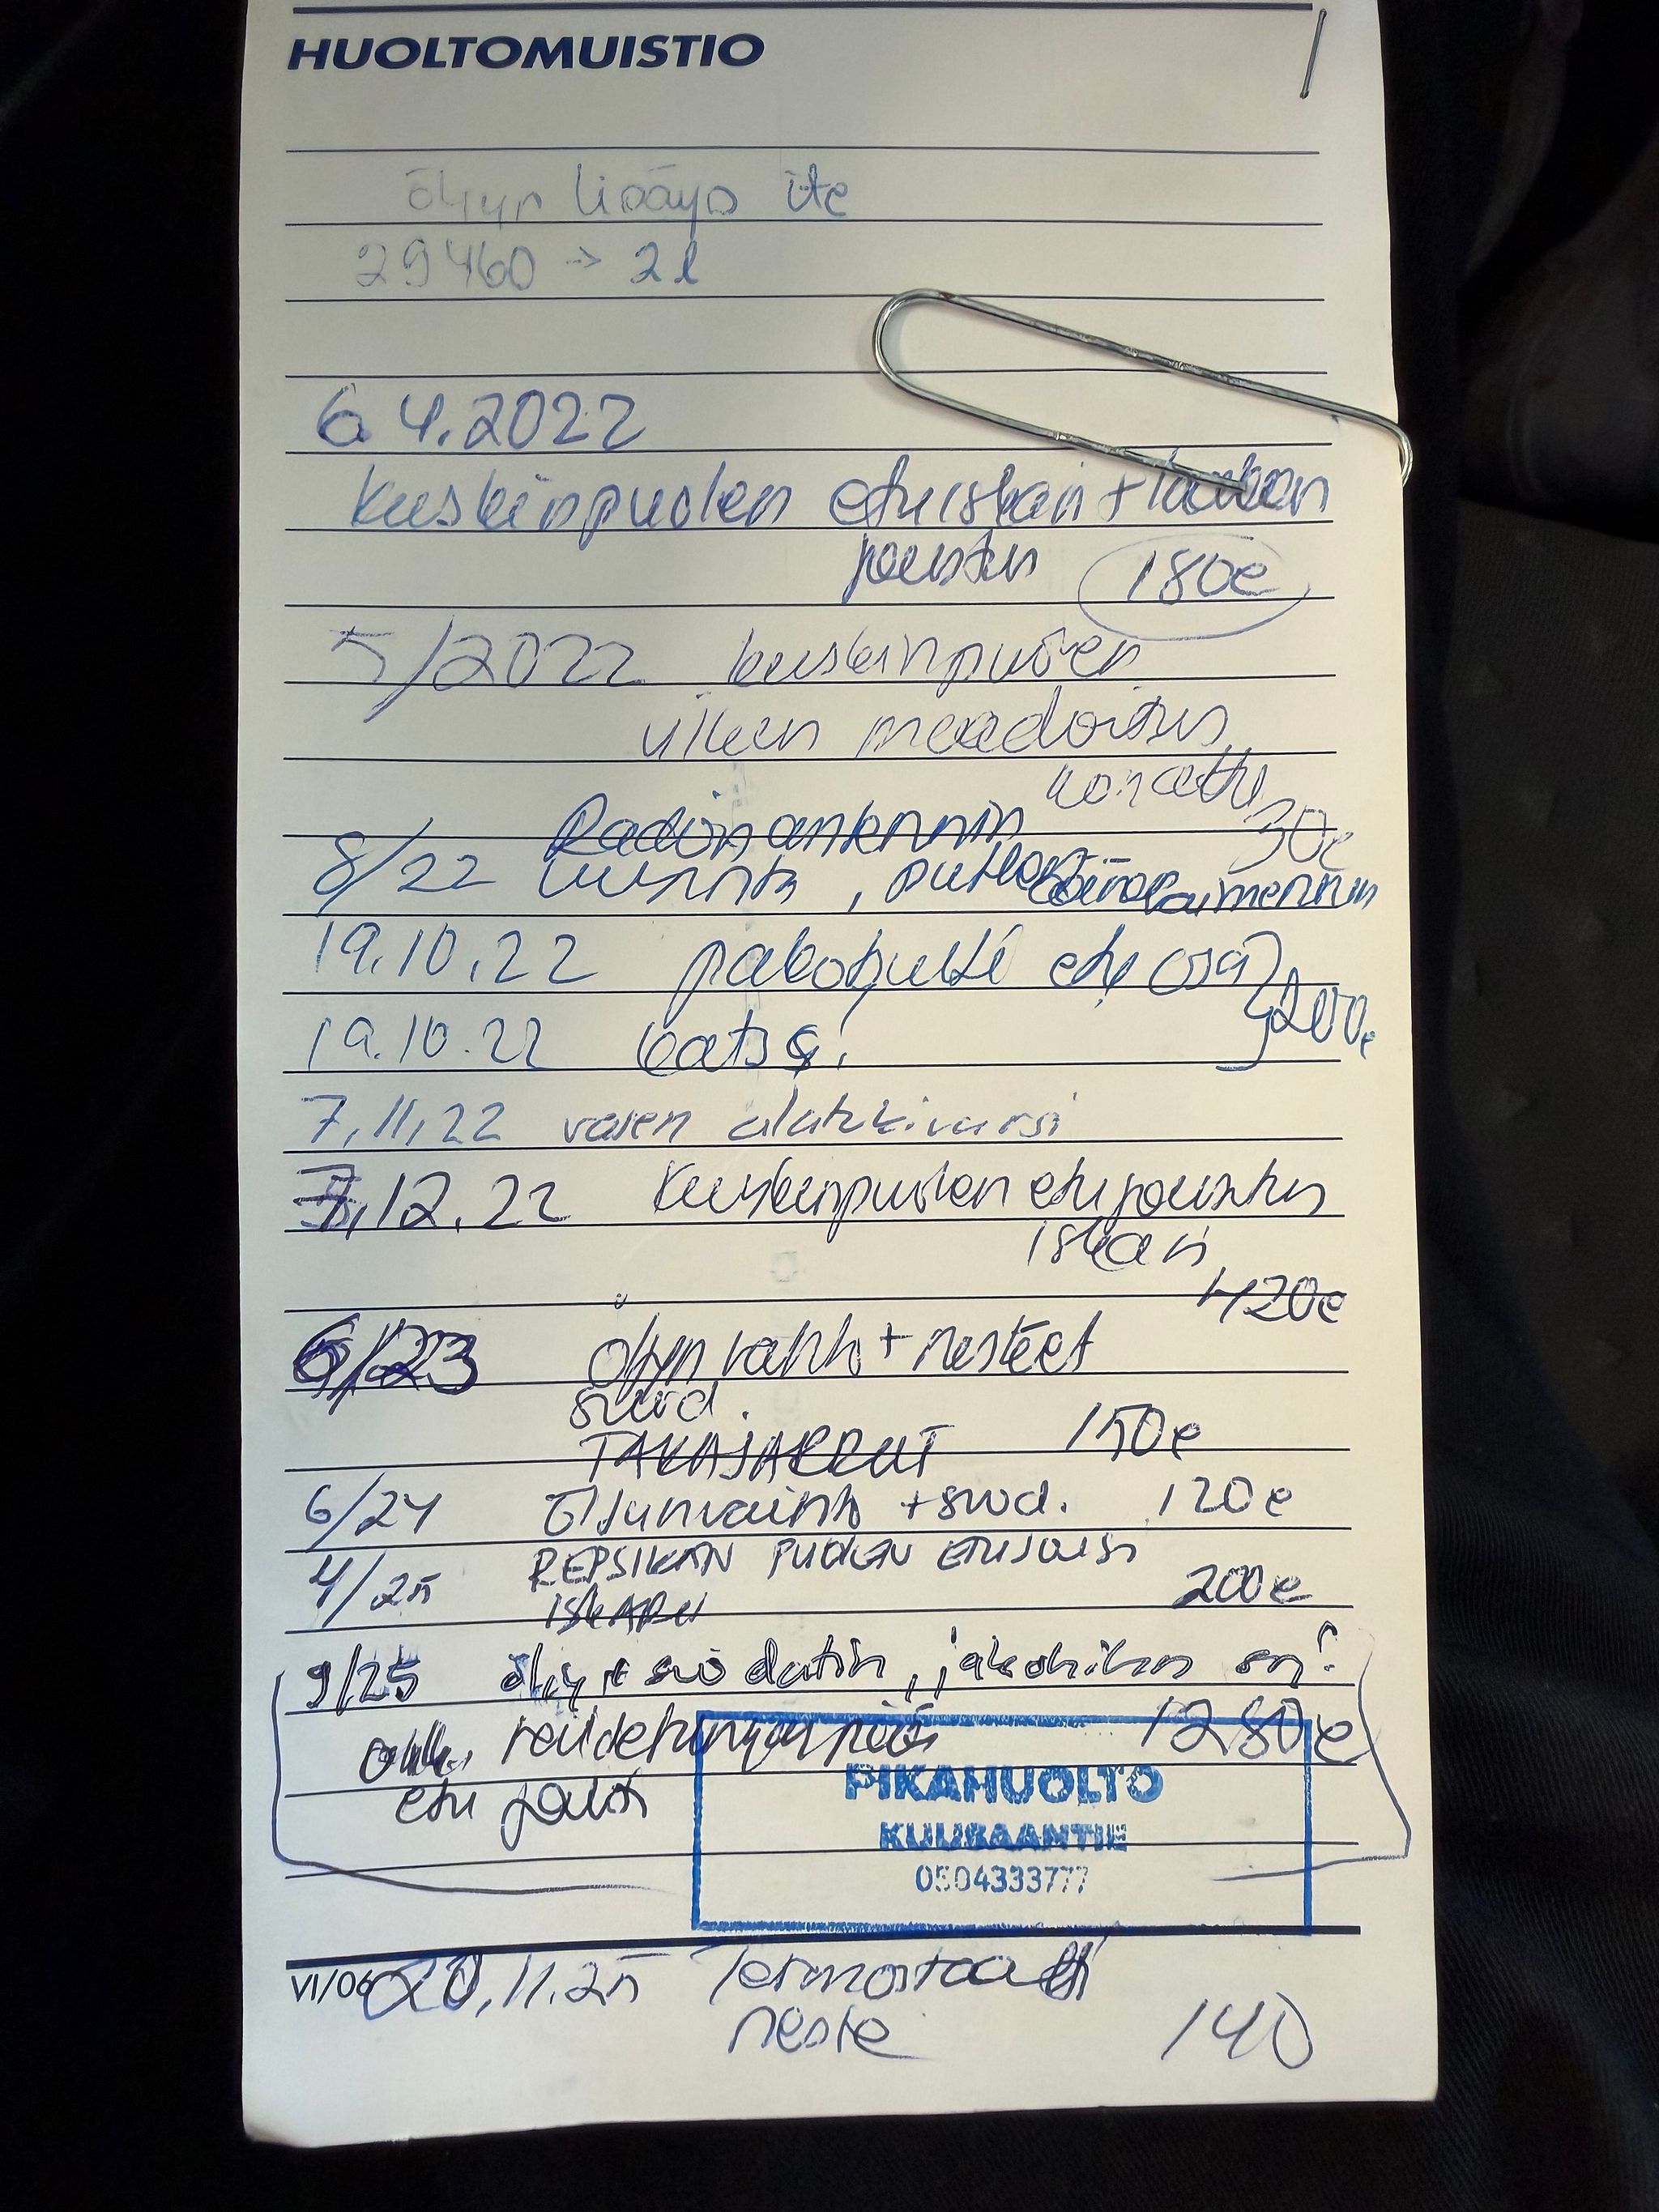 HUOLTOMUISTIO
öljyn lisäys ite
29460 → 2l
6.4.2022
kuskinpuolen etuiskari + takan
joustin 180e
5/2022 kuskinpuolen
vilkun maadoitus
korjattu
30e
Radion antennin
8/22 uusinta,
19.10.22 pakoputki etuosa
200e
19.10.22 katsa.
7.11.22 vasen alatukivarsi
7.12.22 Kuskinpuolen etujoustin
iskari
420e
6/23 öljyn vaihto + nesteet
suod.
TAKAJARRUT 150e
6/24 Öljynvaihto + suod. 120e
4/25 REPSIKAN PUOLEN ETUJOUSI
ISKARI 200e
9/25 öljy + suodatin, jakohihnan srj.
raidetangonpää 1280e
etu
PIKAHUOLTO
KUUSAANTIE
0504333777
VI/06
20.11.25 Termostaatti
neste 140